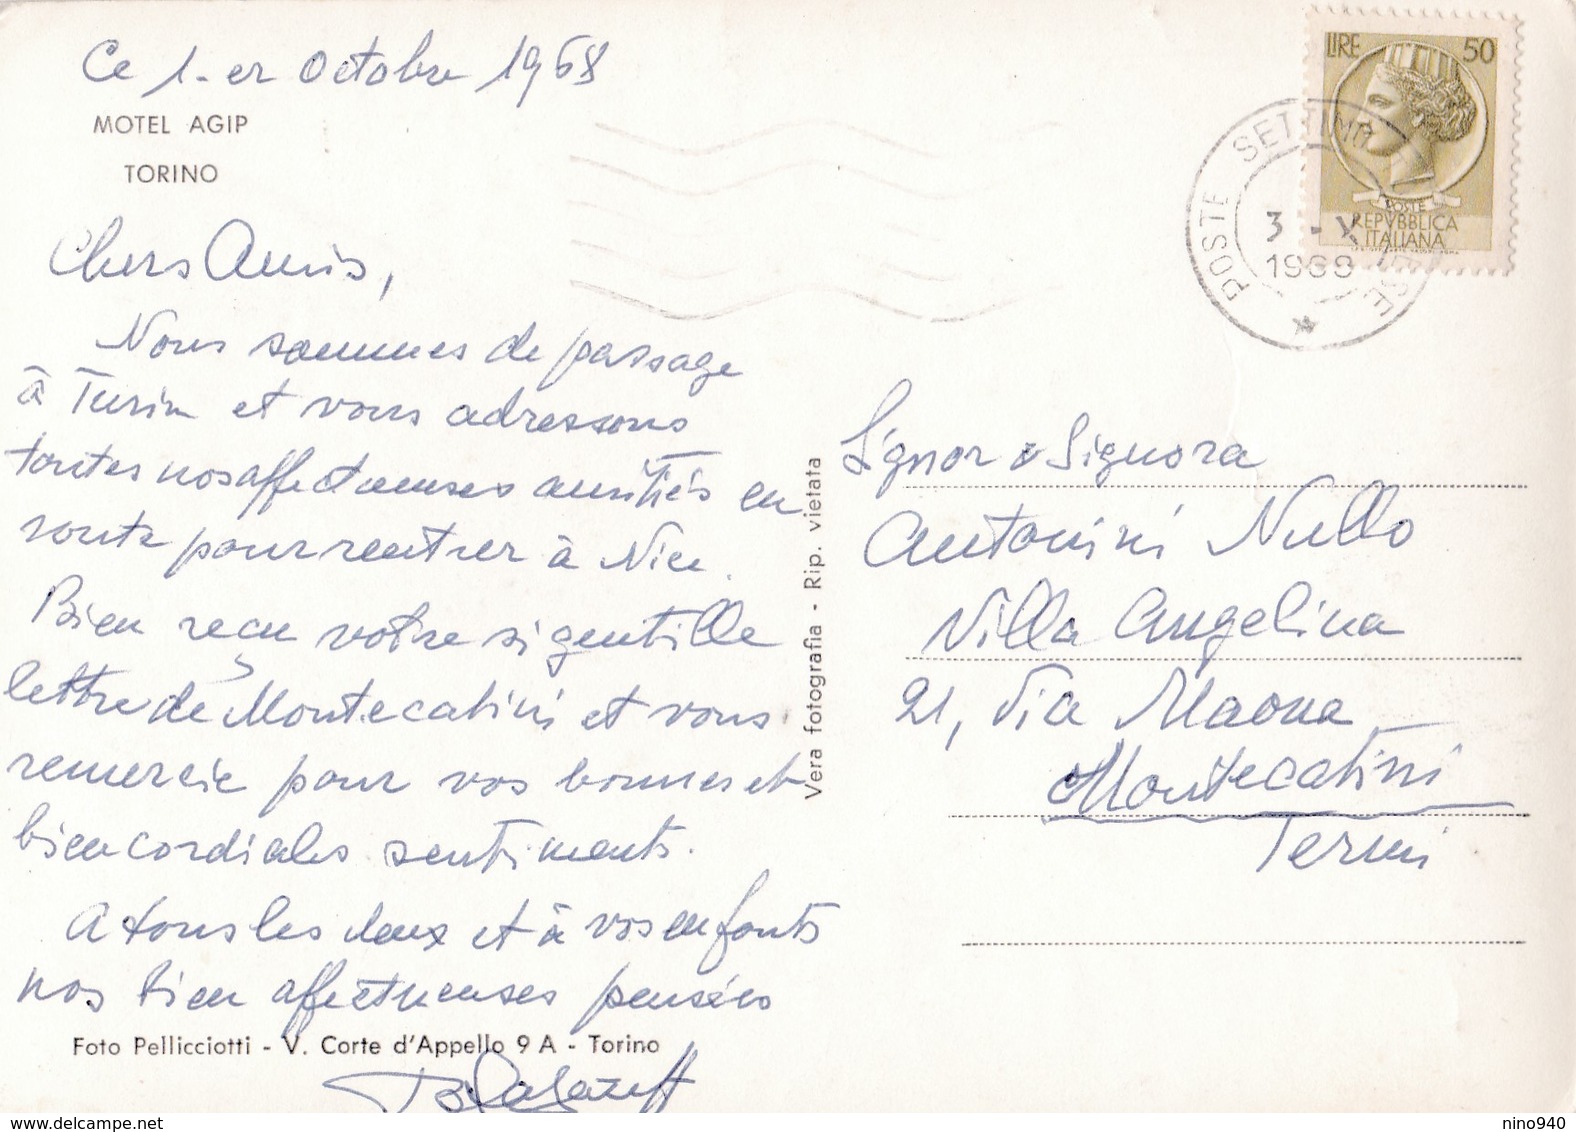 Ce 1-er Octobre 1968
MOTEL AGIP
TORINO
Chers Amis,
Nous sommes de passage
à Turin et vous adressons
toutes nos affectueuses amitiés en
route pour rentrer à Nice.
Bien reçu votre si gentille
lettre de Montecatini et vous
remercie pour vos bonnes et
bien cordiales sentiments.
A tous les deux et à vos enfants
nos bien affectueuses pensées
Foto Pellicciotti - V. Corte d'Appello 9 A - Torino
Vera fotografia - Rip. vietata
LIRE 50
POSTE
REPVBBLICA
ITALIANA
POSTE SETTIMO
3 - X
1968
Signor e Signora
Antonini Nullo
Villa Angelina
21, Via Maona
Montecatini
Termi
www.delcampe.net
nino940